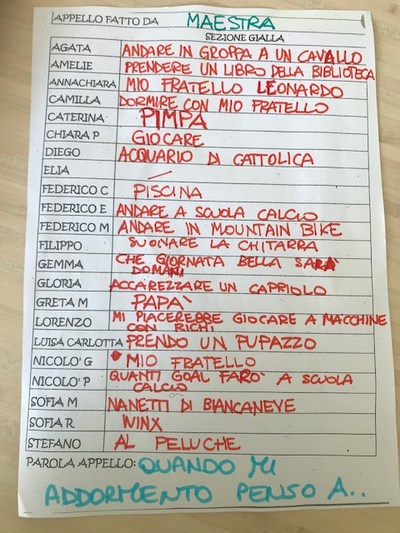 APPELLO FATTO DA MAESTRA
SEZIONE GIALLA
AGATA ANDARE IN GROPPA A UN CAVALLO
AMELIE PRENDERE UN LIBRO DELLA BIBLIOTECA
ANNACHIARA MIO FRATELLO LEONARDO
CAMILLA DORMIRE CON MIO FRATELLO
CATERINA PIMPA
CHIARA P GIOCARE
DIEGO ACQUARIO DI CATTOLICA
ELIA
FEDERICO C PISCINA
FEDERICO E ANDARE A SCUOLA CALCIO
FEDERICO M ANDARE IN MOUNTAIN BIKE
FILIPPO SUONARE LA CHITARRA
GEMMA CHE GIORNATA BELLA SARÀ
DOMANI
GLORIA ACCAREZZARE UN CAPRIOLO
GRETA M PAPA'
LORENZO MI PIACEREBBE GIOCARE A MACCHINE
CON RICHI
LUISA CARLOTTA PRENDO UN PUPAZZO
NICOLO' G MIO FRATELLO
NICOLO' P QUANTI GOAL FARO' A SCUOLA
CALCIO
SOFIA M NANETTI DI BIANCANEVE
SOFIA R WINX
STEFANO AL PELUCHE
PAROLA APPELLO: QUANDO MI
ADDORMENTO PENSO A..